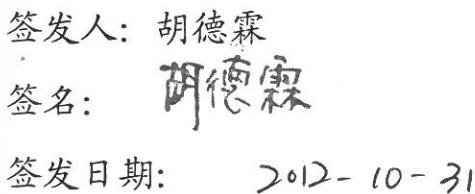 签发人: 胡德霖
签名: 胡德霖
签发日期: 2012-10-31